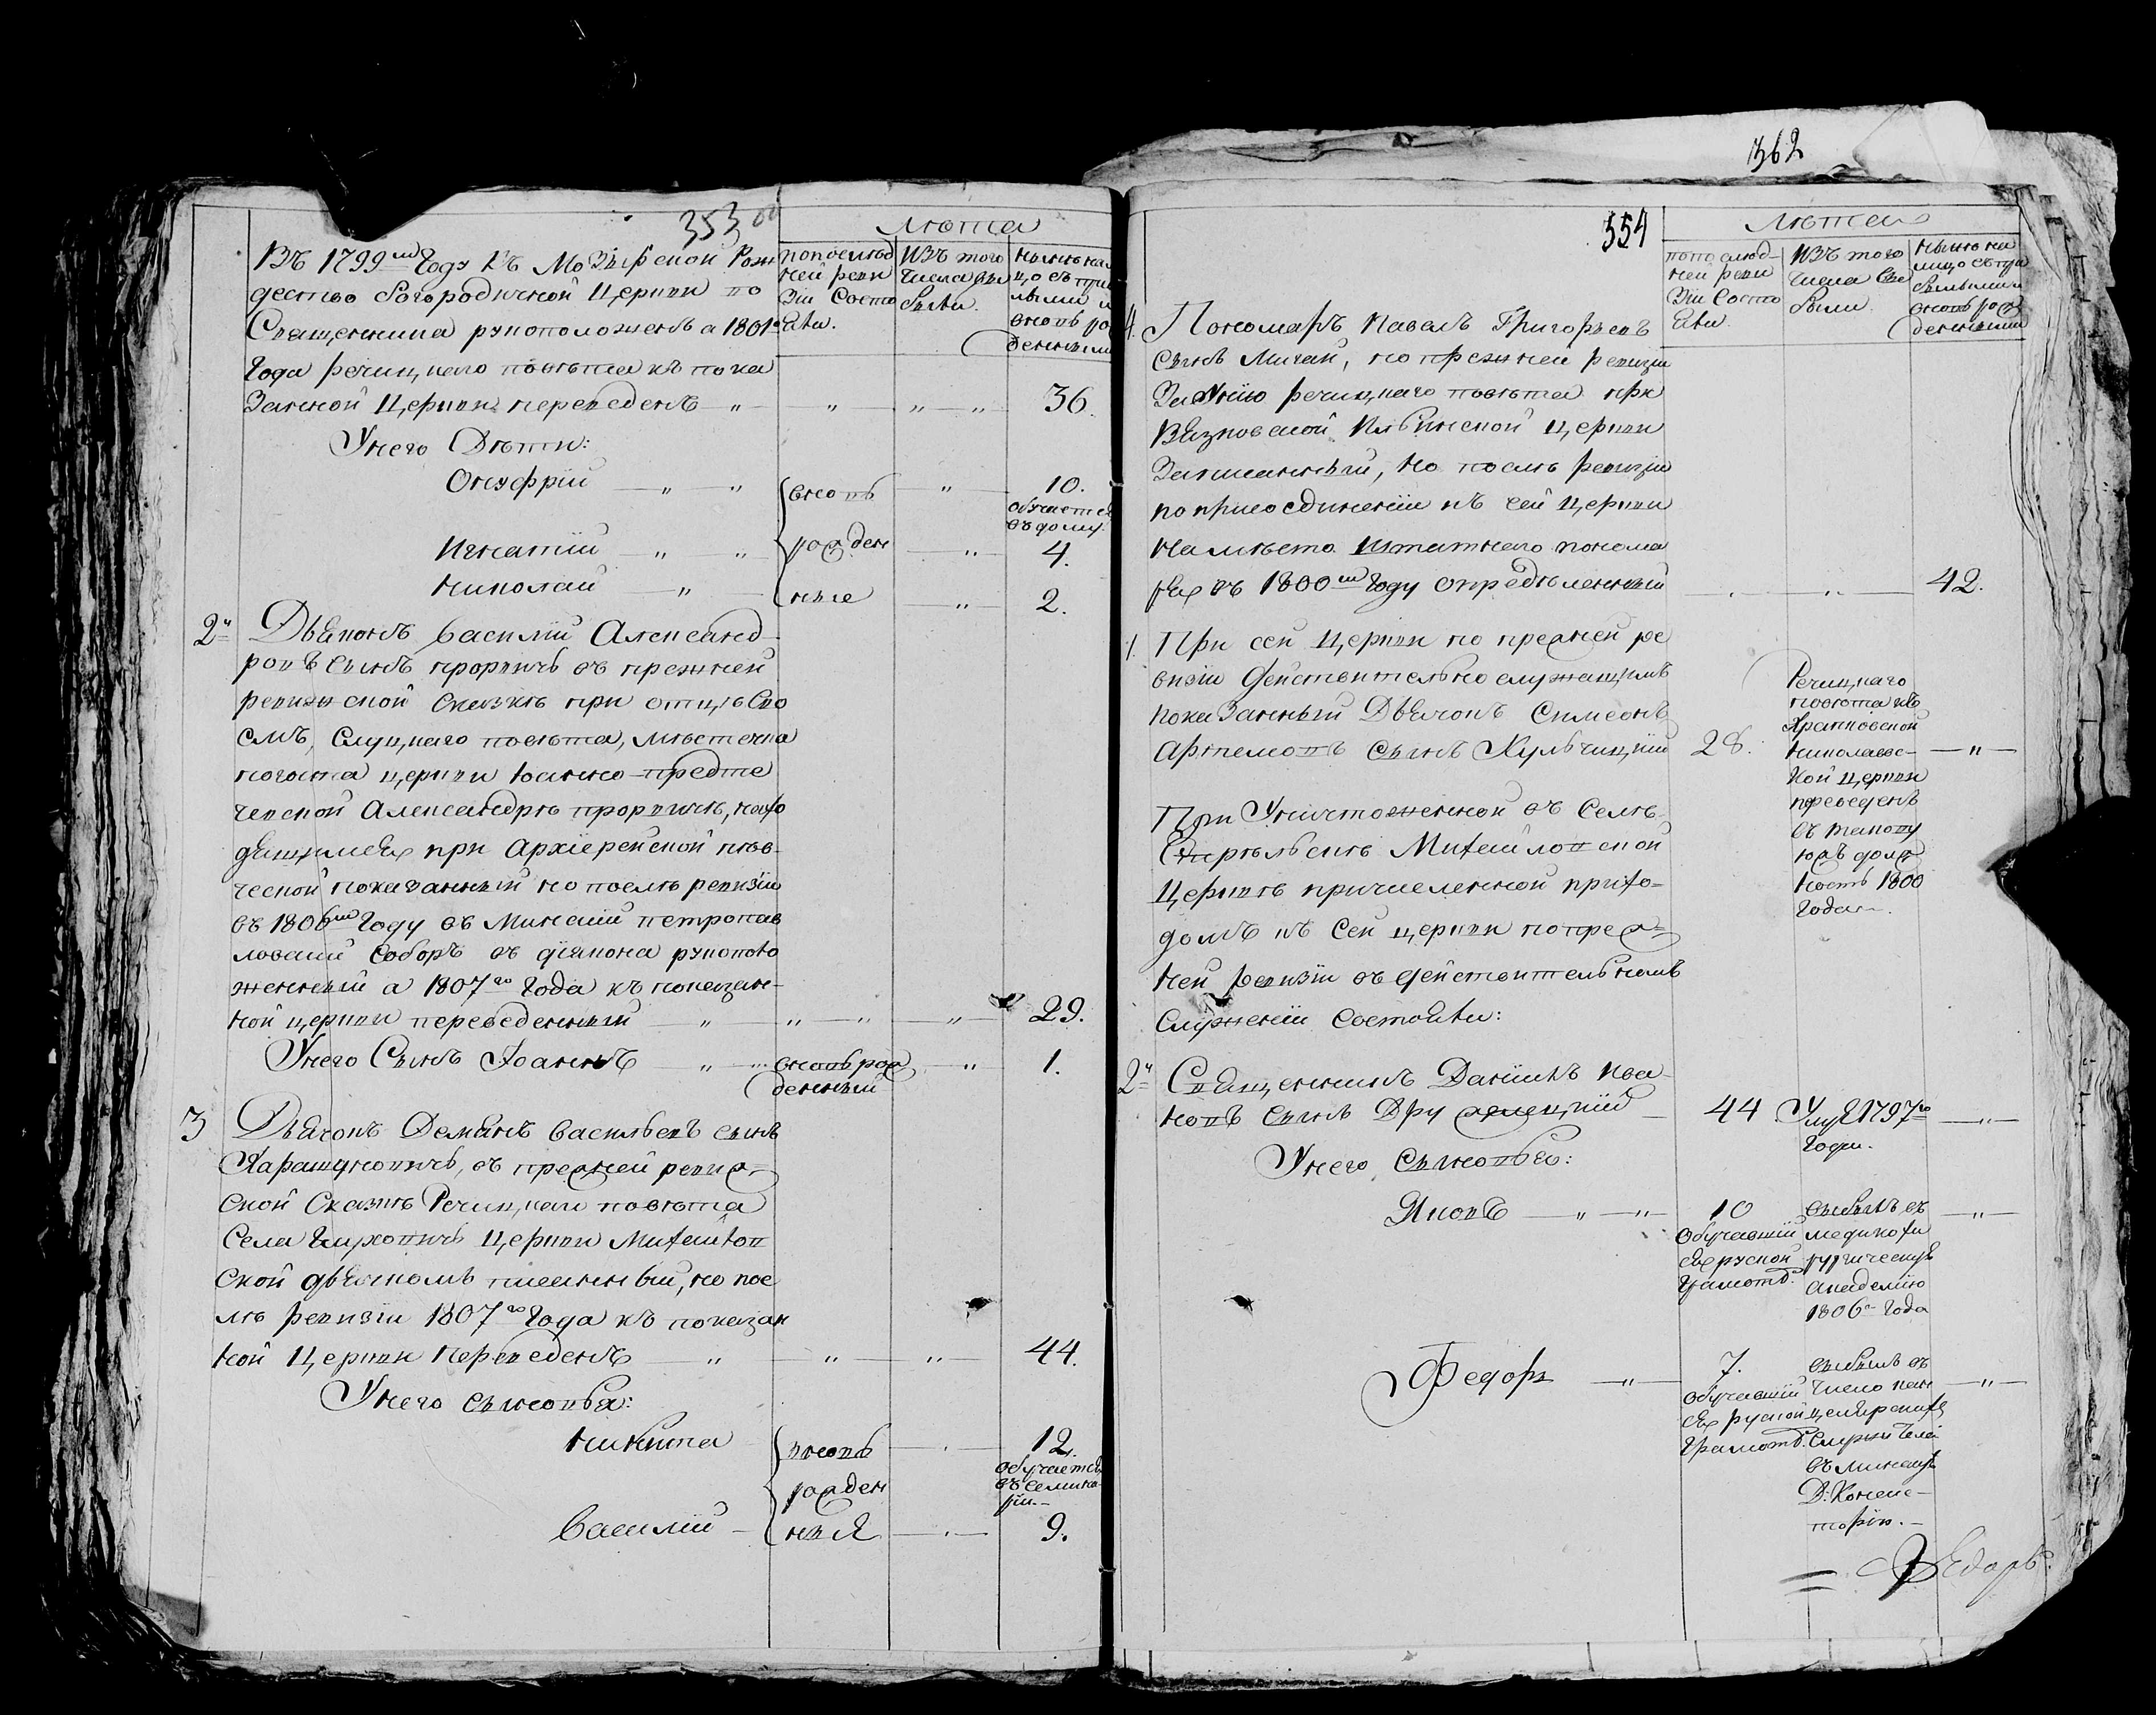 353
лѣта
по последней ревизiи состояли.
изъ того числа выбыли.
нынѣ на лицо съ прибылыми и вновь рожденными
Въ 1799мъ Году къ Мозырской Рож
дество Богородичной Церкви во
Священника рукоположенъ а 1801го
Года речицкаго повѣта къ пока
занной Церкви переведенъ — " — " — " — " — 36.
У него Дѣти:
Онуфрiй — " — " вновь — " — 10.
обучается
въ дому.
Игнатiй — " — " рожден — " — 4.
Николай — " — ные — " — 2.
2й Дьяконъ Василiй Александ
ровъ сынъ прорвичь въ прежней
ревизской сказкѣ при отцѣ сво
емъ, Слуцкаго повѣта, мѣстечка
погоста церкви Iоанно-предте
ченской Александрѣ прорвичѣ, нахо
дящимся при Архiерейской пѣв-
ческой показанный но послѣ ревизiи
въ 1806мъ Году въ Минскiй петропав
ловскiй Соборъ въ дiякона рукополо
женный а 1807го Года къ показан-
ной церкви переведенный " — " — " — " — 29.
У него Сынъ Iоаннъ " — вновь рож — " — 1.
денный
3 Дьячокъ Демьянъ Васильевъ сынъ
Харашуновичь, въ прежней ревиз-
ской Сказкѣ Речицкаго повѣта
Села церкви Михайлов
ской дьячкомъ писанный, но пос
лѣ ревизiи 1807го Года къ показан
ной Церкви переведенъ " — " — " — 44.
У него сыновья:
Никита вновь — " — 12.
обучается
въ семина
рiи.-
рожден
Василiй — ныя — " — 9.
362
354
лѣта
по послѣд-
ней реви
зiи Состо
яли.
Изъ того
числа вы
были.
нынѣ на
лицо съ при
былыми и
вновь рож
денными
4. Пономарь Павелъ Григорьевъ
сынъ Мигай, по прежней ревизiи
речицкаго повѣта при
Вязновской Ильинской церкви
Записанный, но послѣ ревизiи
по присоединенiи къ сей церкви
на мѣсто штатнаго понома
ря въ 1800мъ Году опредѣленный — " — " — 42.
1. При сей Церкви по прежней ре
визiи действительно служащимъ
показанный Дьячокъ Симеонъ
Артемовъ сынъ Кульчицкiй 28. — " —
Речицкаго
повѣта къ
Храпковской
николаевс-
кой церкви
переведенъ
въ таковую
жъ долж
ность 1800
Года.
При Уничтоженной въ Селѣ
Михайловской
Церквѣ причисленной прихо-
домъ къ Сей церкви по преж-
ней ревизiи въ действительномъ
Служенiи Состояли:
2й Священникъ Данiилъ Ива-
новъ сынъ 44 Умре 1797го — " —
Года.
У него Сыновья:
Яковъ — " — " — 10 — " —
обучавшiй
ся руской
грамотѣ.
выбылъ въ
медикохи
рургическую
Академiю
1806го Года
Федоръ — " — 7. — " —
обучавшiй
ся руской
грамотѣ.
выбылъ въ
число кан
целярскихъ
Служителей
въ минскую
Д: Консис-
торiю.-
Федоръ.